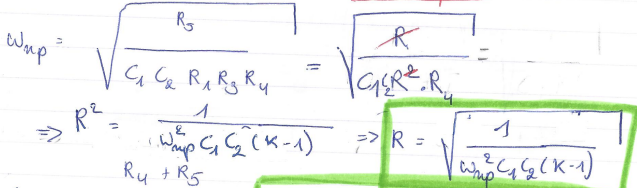 ω_np = √(R_5 / (C_1 C_2 R_1 R_3 R_4)) = √(R / (C_1 C_2 R^2 · R_4)) =
=> R^2 = 1 / (ω_np^2 C_1 C_2 (K-1)) => R = √(1 / (ω_np^2 C_1 C_2 (K-1)))
R_4 + R_5